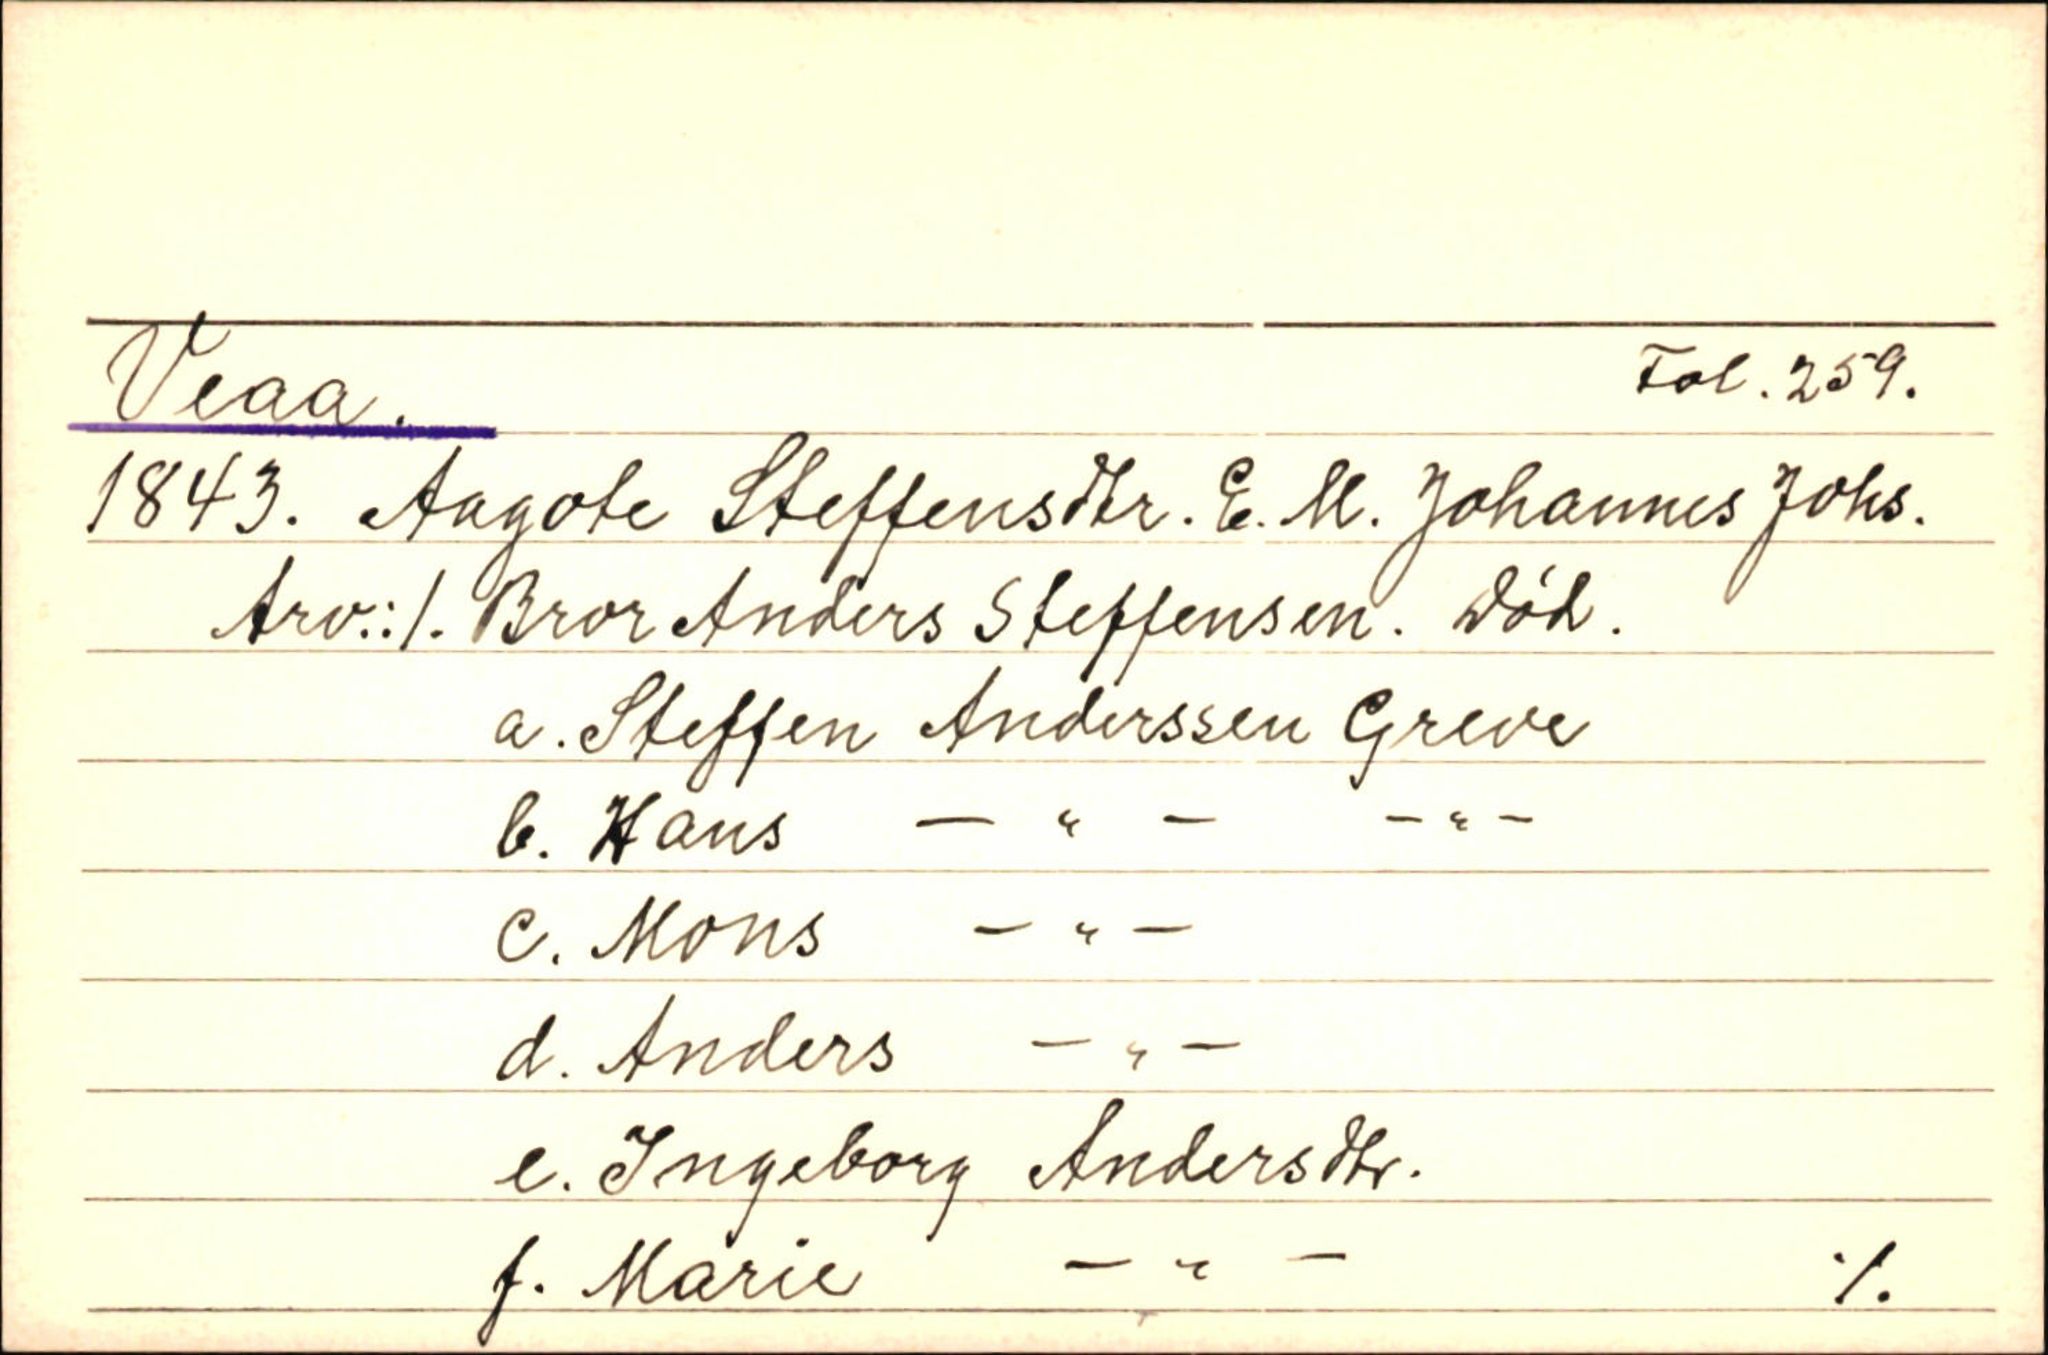 Veaa. Fol. 259.
1843. Aagote Steffensdtr. E. M. Johannes Johs.
Arv.: 1. Bror Anders Steffensen. död.
a. Steffen Anderssen Greve
b. Hans — " — — " —
c. Mons — " —
d. Anders — " —
e. Ingeborg Andersdtr.
f. Marie — " — ./.